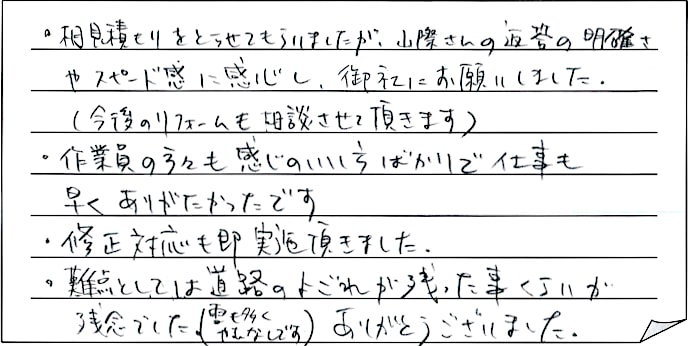 ・相見積もりをとらせてもらいましたが、山際さんの返答の明確さ
やスピード感に感心し、御社にお願いしました。
(今後のリフォームも相談させて頂きます)
・作業員の方々も感じのいい方ばかりで仕事も
早くありがたかったです
・修正対応も即実施頂きました。
・難点としては道路のよごれが残った事くらいが
残念でした(雪も多くやむなしです)ありがとうございました。